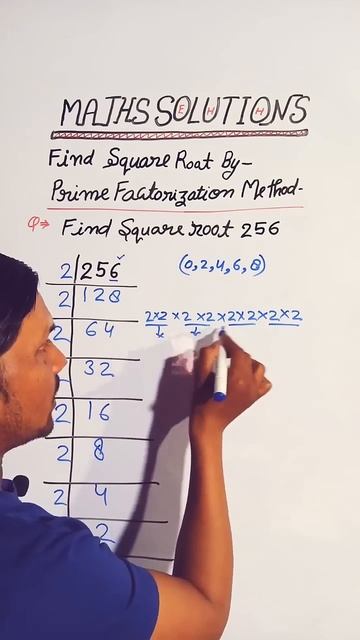 MATHS SOLUTIONS
Find Square Root By-
Prime Factorization Method-
Q⇒ Find Square root 256
2 256 (0,2,4,6,8)
2 128
2×2×2×2×2×2×2×2
2 64
32
2 16
2 8
2 4
2